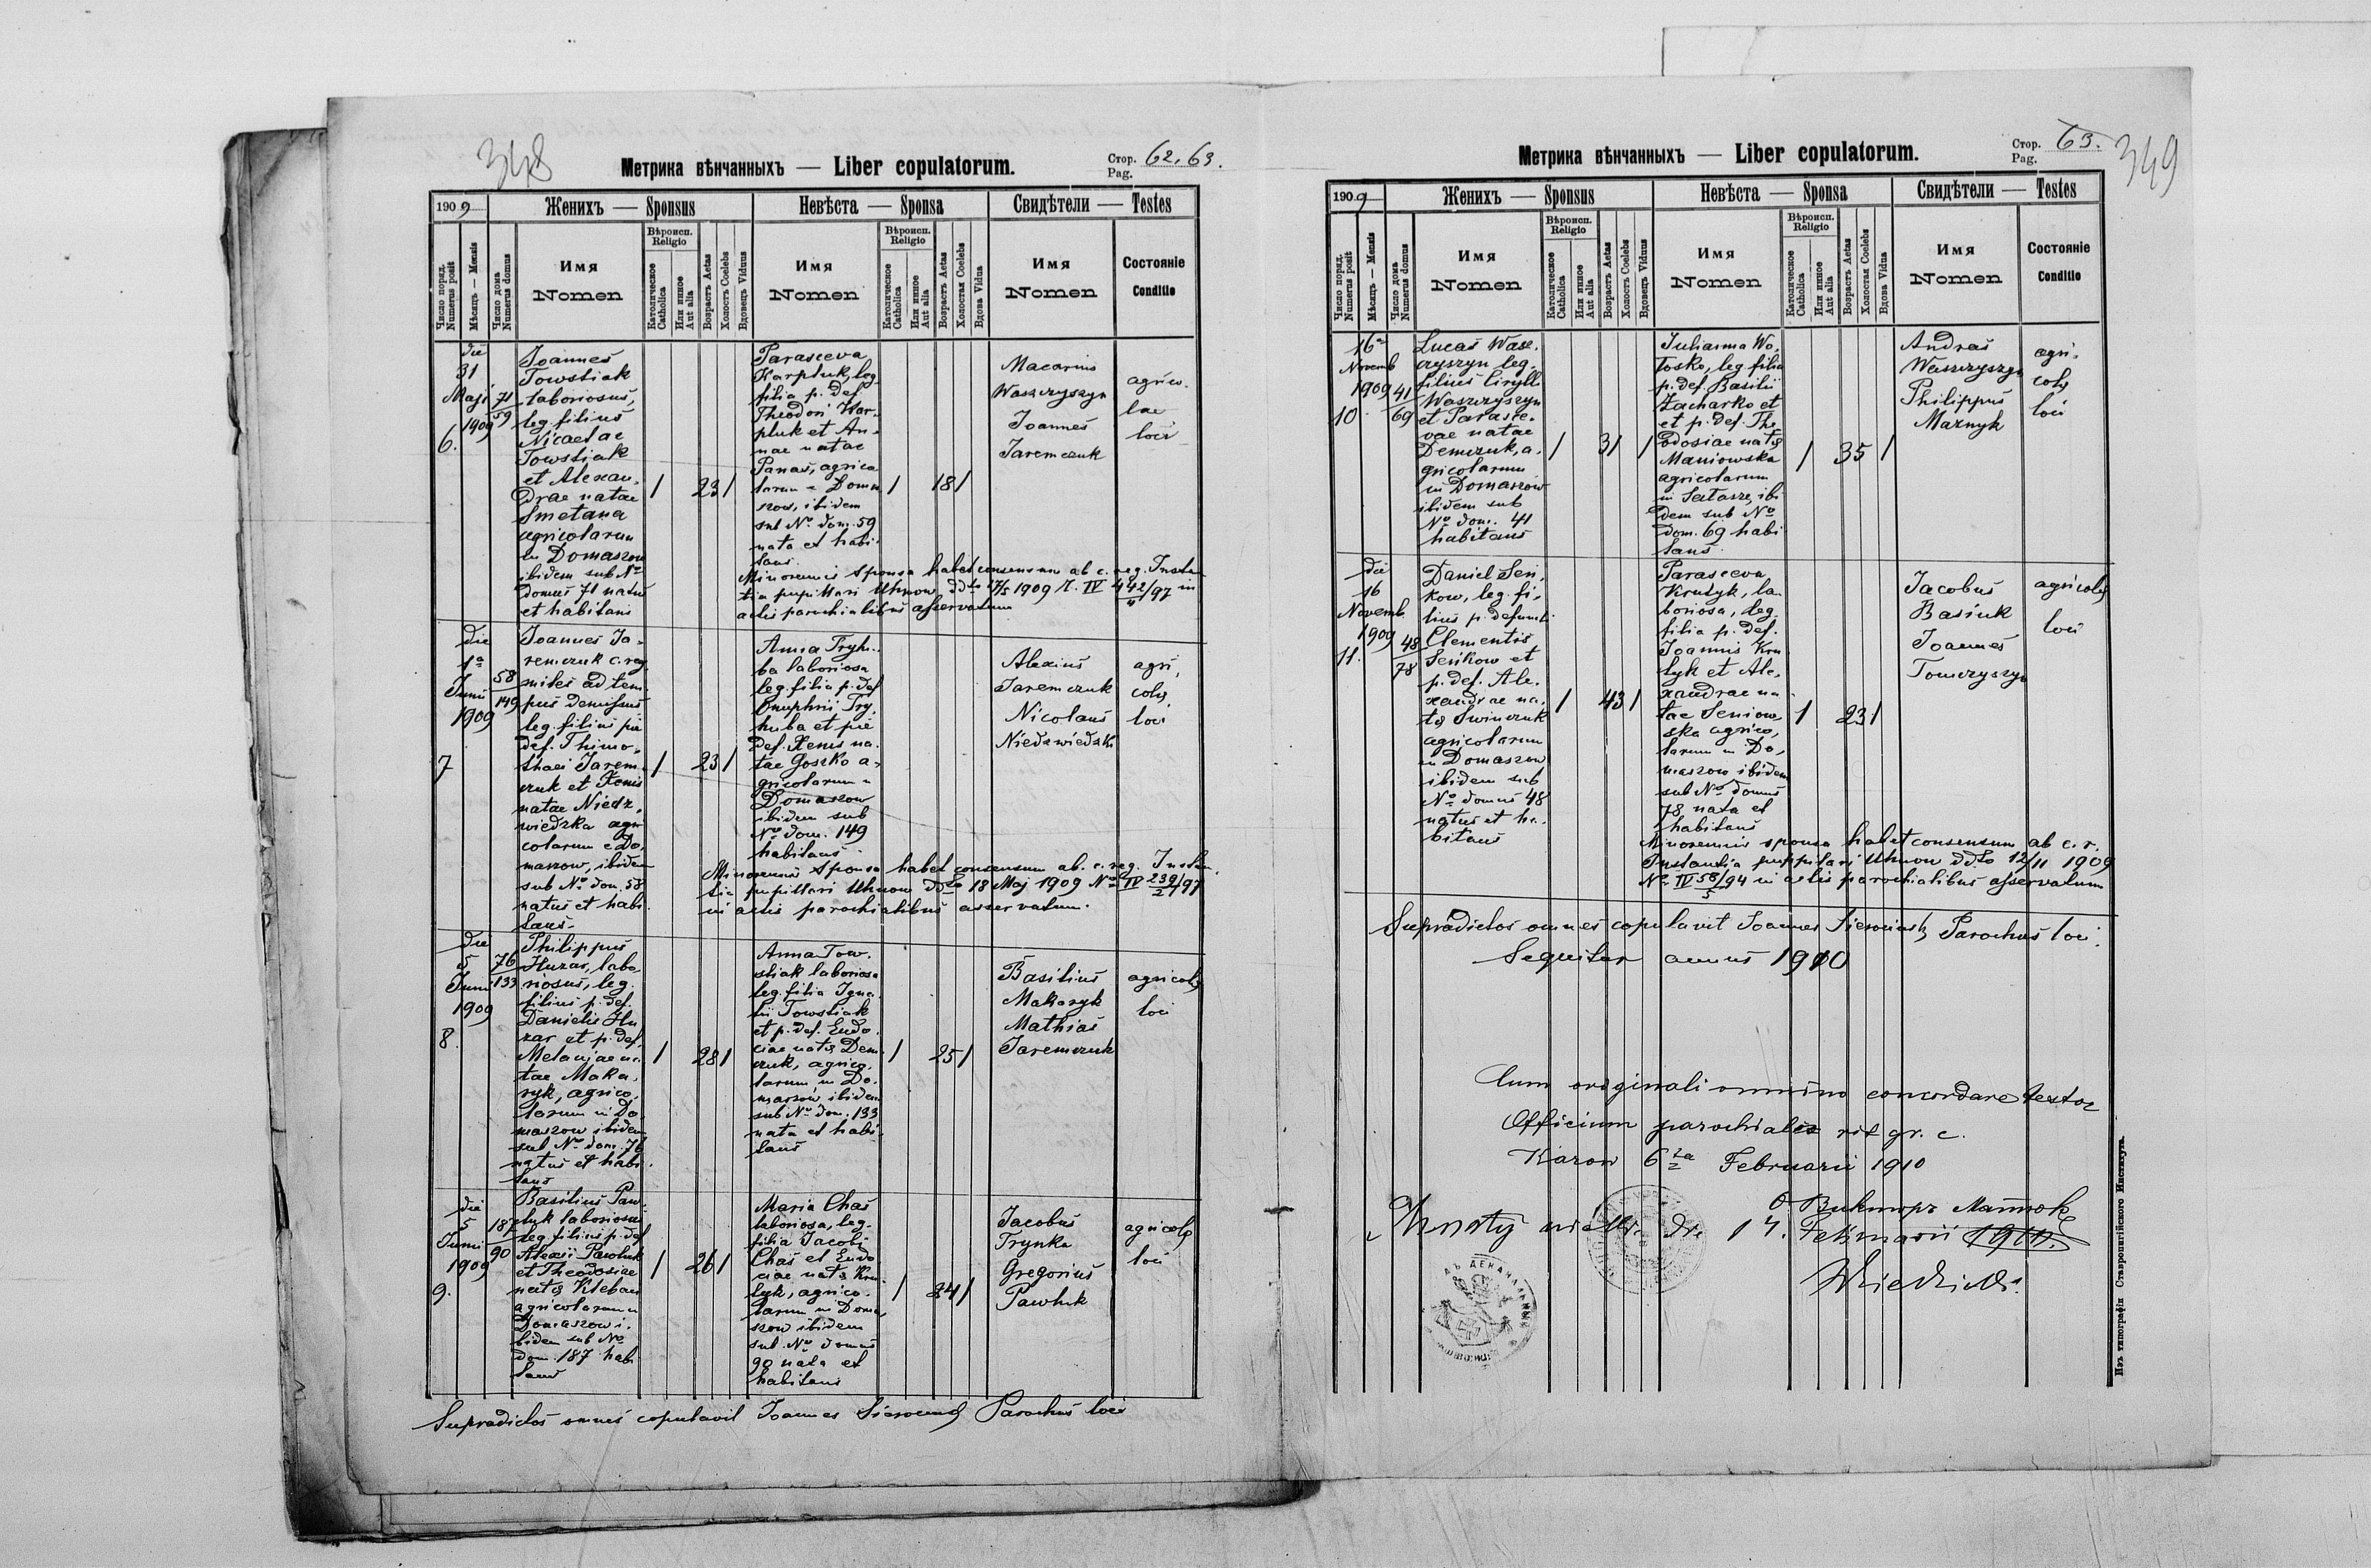 348
Метрика вѣнчанныхъ — Liber copulatorum.
Стор. 62. 63.
Pag.
1909
Женихъ — Sponsus
Невѣста — Sponsa
Свидѣтели — Testes
Число поряд. Numerus posit
Мѣсяцъ — Mensis
Число дома Numerus domus
Имя Nomen
Вѣроисп. Religio
Католическое Catholica
Или инное Aut alia
Возрастъ Aetas
Холостъ Coelebs
Вдовецъ Viduus
Имя Nomen
Вѣроисп. Religio
Католическое Catholica
Или инное Aut alia
Возрастъ Aetas
Холостая Coelebs
Вдова Vidua
Имя Nomen
Состояніе Conditio
die
31
Maji
1909
6.
71
59
Joannes
Towstiak
laboriosus,
leg. filius
Nicaelae
Towstiak
et Alexan,
drae natae
Smetana
agricolarum
in Domaszow
ibidem sub No
domus 71 natus
et habitans
1 23 1
Parasceva
Karpluk, leg.
filia p. def.
Theodori Kar-
pluk et An-
nae natae
Panas, agrico
larum in Doma
szow, ibidem
sub No dom. 59
nata et habi-
tans.
1 18 1
Macarius
Waszczyszyn
Joannes
Jaremczuk
agrico.
lae
loci
Minorennis sponsa habet consensum ab c. reg. Instan
tia pupillari Uhnow ddto 17/5 1909 L. IV 442/97 in
4
actis parochialibus asservatum
die
1a
Junii
1909
7
58
149
Joannes Ja-
remczuk c. reg
miles ad tem
pus demissus
leg. filius pie
def. Thimo,
thaei Jarem
czuk et Xenis
natae Niedz,
wiedzka agri
colarum in Do,
maszow, ibidem
sub No dom. 58
natus et habi
tans.
1 23 1
Anna Tryhu-
ba laboriosa
leg. filia p. def
Onuphrii Try,
huba et pie
def. Xenis na.
tae Goszko a-
gricolarum in
Domaszow
ibidem sub
No dom. 149
habitans
Alexius
Jaremczuk
Nicolaus
Niedzwiedzki
agri,
colae
loci
Minorennis sponsa habet consensum ab. c. reg. Instan
tia pupillari Uhnow ddto 18 Maj 1909 No IV 239/97
2
in actis parochialibus asservatum.
die
5
Junii
1909
8.
76
133
Philippus
Huzar, labo
riosus, leg.
filius p. def.
Danielis Hu
zar et p. def.
Melanjae na
tae Maka,
ryk, agrico,
larum in Do
maszow ibidem
sub No dom. 76
natus et habi.
tans
1 28 1
Anna Tow.
stiak laboriosa
leg. filia Igna
tii Towstiak
et p. def. Eudo.
ciae natae Dem
czuk, agrico,
larum in Do.
maszow ibidem
sub No dom. 133
nata et habi
tans
1 25 1
Basilius
Makaryk
Mathias
Jaremczuk
agricolae
loci
die
5
Junii
1909
9.
187
90
Basilius Paw-
luk laboriosus
leg. filius p. def
Alexii Pawluk
et Theodosiae
natae Kleban
agricolarum in
Domaszow i.
bidem sub No
dom. 187 habi
tans
1 26 1
Maria Chas
laboriosa, leg.
filia Jacobi
Chas et Eudo
ciae natae Kru
lyk, agrico.
larum in Doma
szow ibidem
sub No domus
90 nata et
habitans
1 24 1
Jacobus
Trynka
Gregorius
Pawluk
agricolae
loci
Supradictos omnes copulavit Joannes Parochus loci
349
Метрика вѣнчанныхъ — Liber copulatorum.
Стор. 63.
Pag.
1909
Женихъ — Sponsus
Невѣста — Sponsa
Свидѣтели — Testes
Число поряд. Numerus posit
Мѣсяцъ — Mensis
Число дома Numerus domus
Имя Nomen
Вѣроисп. Religio
Католическое Catholica
Или инное Aut alia
Возрастъ Aetas
Холостъ Coelebs
Вдовецъ Viduus
Имя Nomen
Вѣроисп. Religio
Католическое Catholica
Или инное Aut alia
Возрастъ Aetas
Холостая Coelebs
Вдова Vidua
Имя Nomen
Состояніе Conditio
16a
Novemb
1909
10
41
69
Lucas Wasz.
czyszyn leg.
filius Cirylli
Waszczyszyn
et Parasce.
vae natae
Demczuk, a.
gricolarum
in Domaszow
ibidem sub
No dom. 41
habitans
1 31 1
Julianna Wo.
tosko, leg. filia
p. def. Basilii
Zacharko et
et p. def. The
odosiae natae
Maniowska
agricolarum
in Satasze, ibi
dem sub No
dom. 69 habi
tans
1 35 1
Andreas
Waszczyszyn
Philippus
Maznyk
agri.
colae
loci
die
16
Novemb
1909
11.
48
78
Daniel Seń,
kow, leg. fi,
lius p. defuncti
Clementis
Seńkow et
p. def. Ale.
xandrae na,
tae Swinczuk
agricolarum
in Domaszow
ibidem sub
No domus 48
natus et ha.
bitans
1 43 1
Parasceva
Krulyk, la
boriosa, leg.
filia p. def.
Joannis Kru
lyk et Ale,
xandrae na
tae Seniow
ska agrico,
larum in Do,
maszow ibidem
sub No domus
78 nata et
habitans
1 23 1
Jacobus
Basiuk
Joannes
Tomczyszyn
agricolae
loci
Minorennis sponsa habet consensum ab c. r.
Instantia puppilari Uhnow ddto 12/11 1909
No IV 58/94 in actis parochialibus asservatum
5
Supradictos omnes copulavit Joannes Parochus loci.
Sequitur annus 1910
Cum originali omnino concordare testor
Officium parochiale rit gr. c.
Karow 6ta Februarii 1910
Викторъ
17. Februarii 1910.
Изъ типографіи Ставропигійского Института.